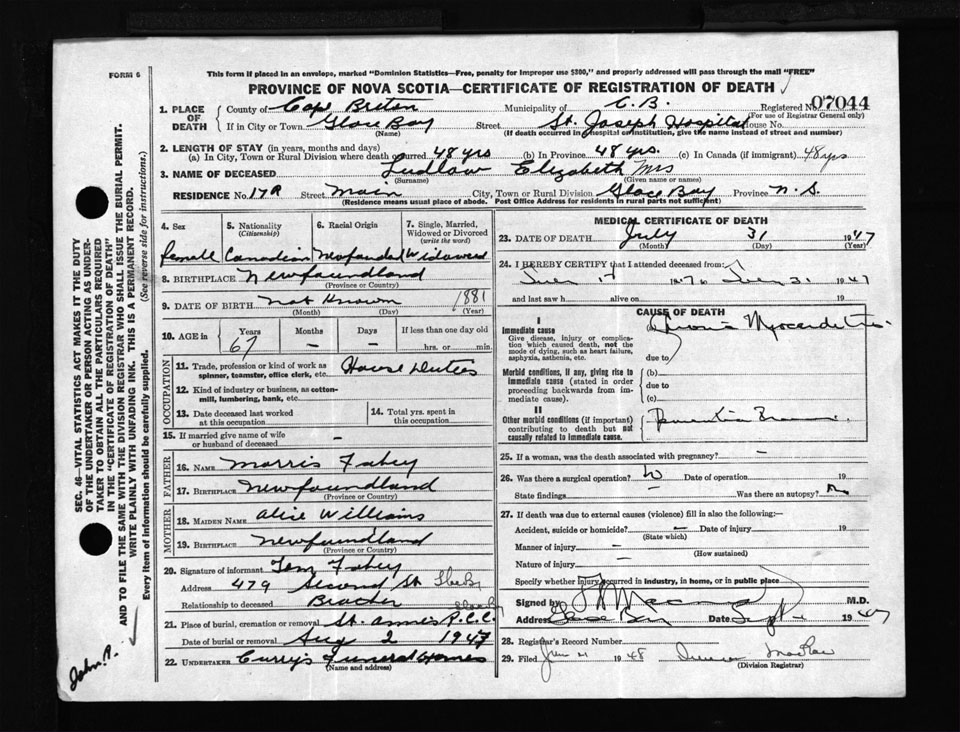 FORM 6
This form if placed in an envelope, marked "Dominion Statistics—Free, penalty for improper use $300," and properly addressed will pass through the mail "FREE"
PROVINCE OF NOVA SCOTIA—CERTIFICATE OF REGISTRATION OF DEATH
1. PLACE OF DEATH County of Cape Breton Municipality of C. B. Registered No. 07044
(For use of Registrar General only)
If in City or Town Glace Bay Street St. Joseph Hospital House No.
(Name) (If death occurred in hospital or institution, give the name instead of street and number)
2. LENGTH OF STAY (in years, months and days)
(a) In City, Town or Rural Division where death occurred 48 yrs (b) In Province 48 yrs. (c) In Canada (if immigrant) 48 yrs
3. NAME OF DECEASED Ludlow Elizabeth Mrs
(Surname) (Given name or names)
RESIDENCE No. 17A Street Main City, Town or Rural Division Glace Bay Province N. S.
(Residence means usual place of abode. Post Office Address for residents in rural parts not sufficient)
4. Sex 5. Nationality (Citizenship) 6. Racial Origin 7. Single, Married, Widowed or Divorced (write the word)
female Canadian Widowed
8. BIRTHPLACE Newfoundland
(Province or Country)
9. DATE OF BIRTH not Known 1881
(Month) (Day) (Year)
10. AGE in Years Months Days If less than one day old
67 — — hrs. or min.
OCCUPATION
11. Trade, profession or kind of work as spinner, teamster, office clerk, etc. House Duties
12. Kind of industry or business, as cotton-mill, lumbering, bank, etc.
13. Date deceased last worked at this occupation
14. Total yrs. spent in this occupation
15. If married give name of wife or husband of deceased —
FATHER
16. NAME Morris Fahey
17. BIRTHPLACE Newfoundland
(Province or Country)
MOTHER
18. MAIDEN NAME Alice Williams
19. BIRTHPLACE Newfoundland
(Province or Country)
20. Signature of informant Tom Fahey
Address 479 Second St
Relationship to deceased Brother
21. Place of burial, cremation or removal St. Annes R.C.C.
Date of burial or removal Aug 2 1947
22. UNDERTAKER Curry's Funeral Homes
(Name and address)
MEDICAL CERTIFICATE OF DEATH
23. DATE OF DEATH July 31 1947
(Month) (Day) (Year)
24. I HEREBY CERTIFY that I attended deceased from:
1947
and last saw h alive on 19
CAUSE OF DEATH
I
Immediate cause (a) Myocarditis
Give disease, injury or complication which caused death, not the mode of dying, such as heart failure, asphyxia, asthenia, etc.
due to
Morbid conditions, if any, giving rise to immediate cause (stated in order proceeding backwards from immediate cause).
(b)
due to
(c)
II
Other morbid conditions (if important) contributing to death but not causally related to immediate cause.
25. If a woman, was the death associated with pregnancy? —
26. Was there a surgical operation? Date of operation 19
State findings — Was there an autopsy?
27. If death was due to external causes (violence) fill in also the following:—
Accident, suicide or homicide? — Date of injury 19
(State which)
Manner of injury —
(How sustained)
Nature of injury —
Specify whether injury occurred in industry, in home, or in public place
Signed by M.D.
Address Glace Bay Date Sept 1947
28. Registrar's Record Number
29. Filed 1948
(Division Registrar)
SEC. 46—VITAL STATISTICS ACT MAKES IT THE DUTY
OF THE UNDERTAKER OR PERSON ACTING AS UNDER-
TAKER TO OBTAIN ALL THE PARTICULARS REQUIRED
IN THE "CERTIFICATE OF REGISTRATION OF DEATH"
AND TO FILE THE SAME WITH THE DIVISION REGISTRAR WHO SHALL ISSUE THE BURIAL PERMIT.
WRITE PLAINLY WITH UNFADING INK. THIS IS A PERMANENT RECORD.
Every item of information should be carefully supplied. (See reverse side for instructions.)
John. P.